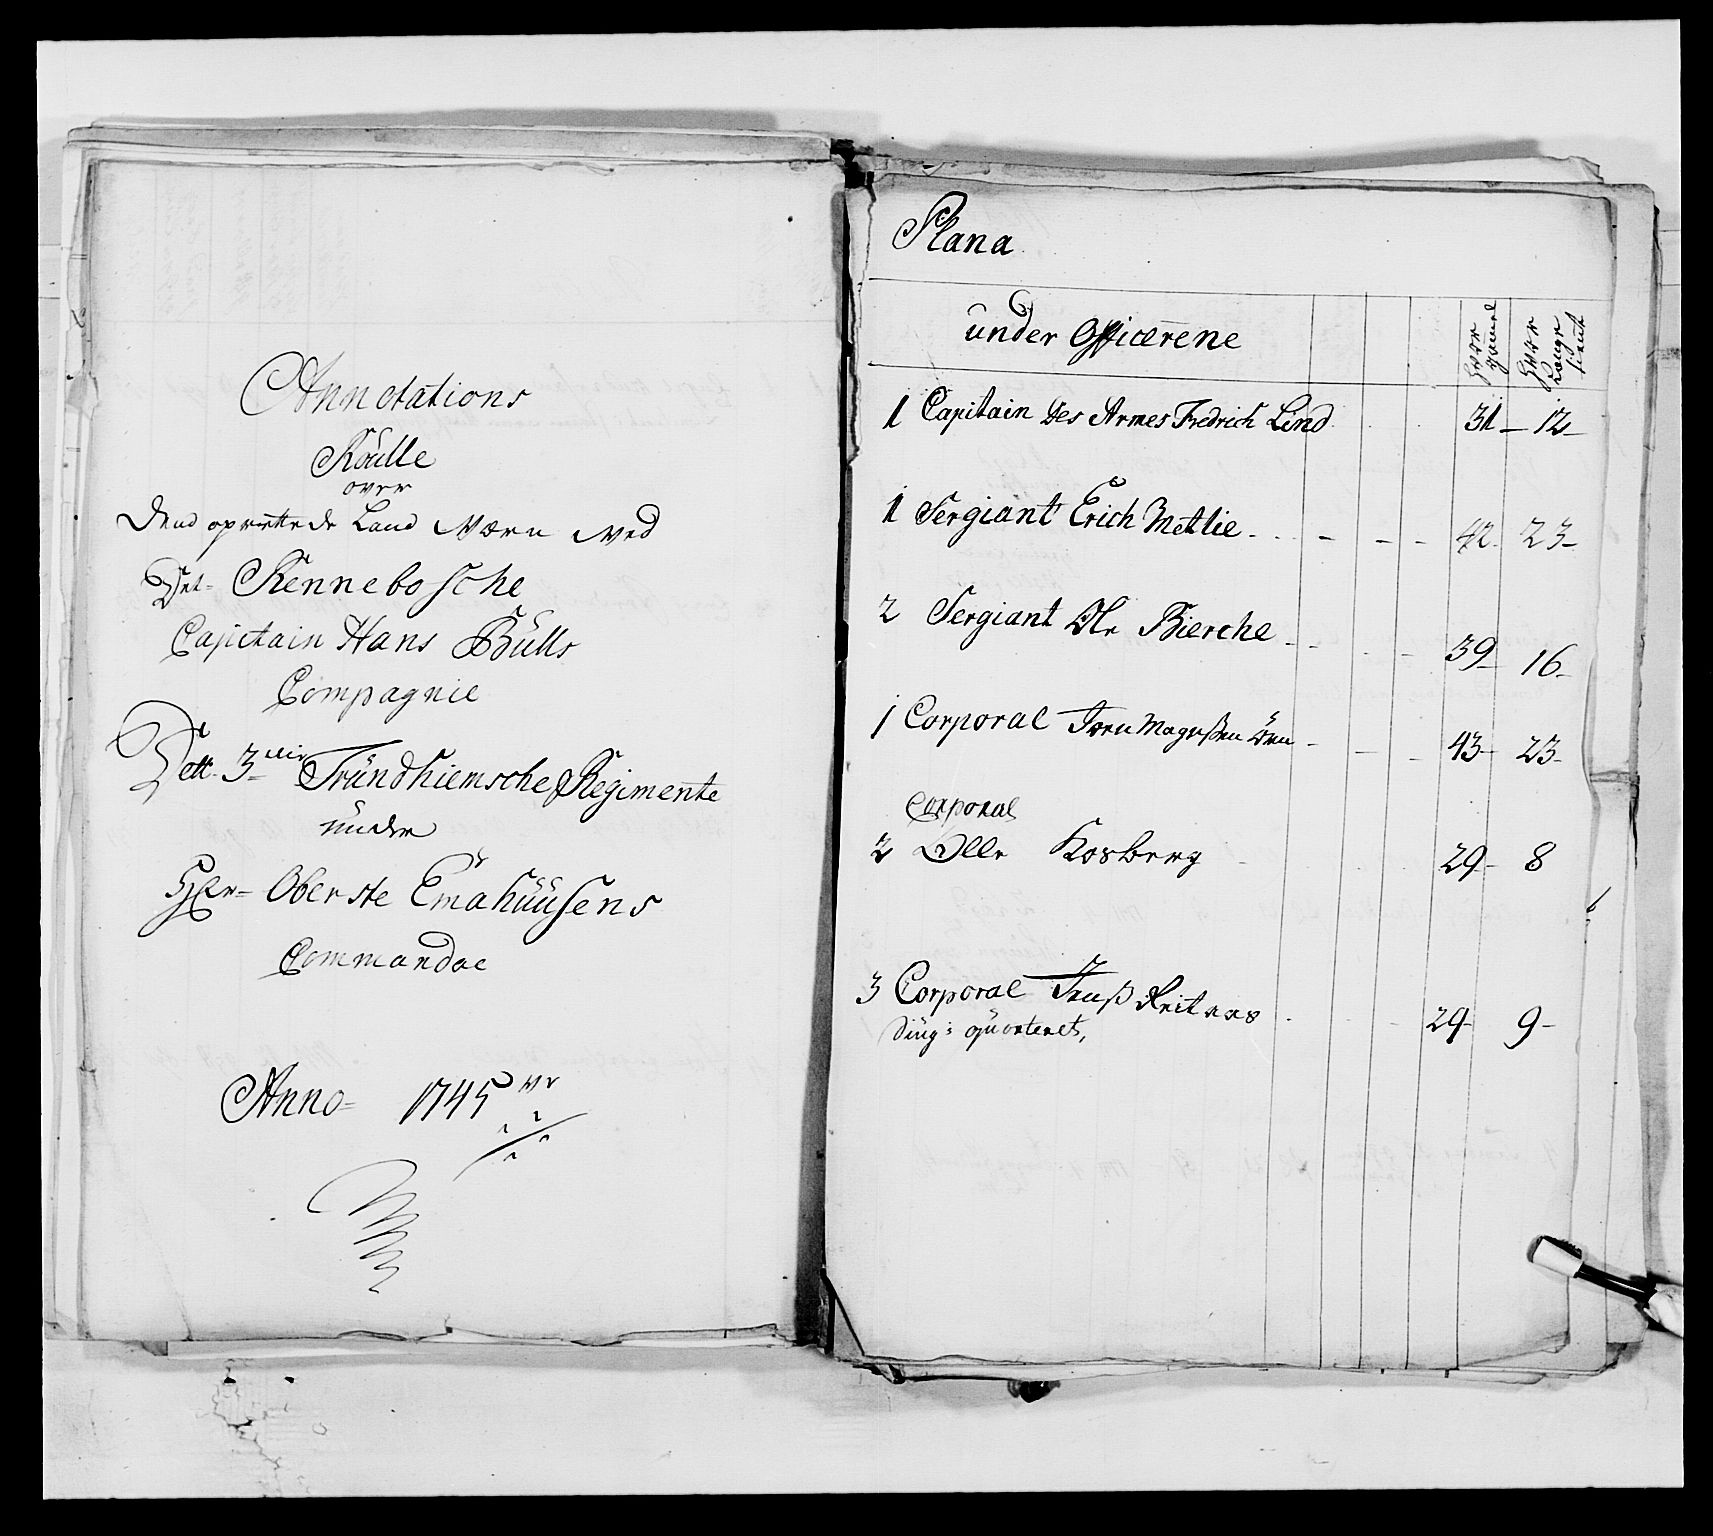 Annotations
Roulle
over
Dend oprettede Land Værn ved
Det- Rennebosche
Capitain Hans Bülls
Compagnie
Dett 3die Tründhiemsche Regimente
under
Hr- Oberste Emahüüsens
Commandoe
Anno- 1745
Plana
under Officerene
Hvor gamel
Hvor Længe tient
1 Capitain des Armes Fredrich Lind 31 - 12 -
1 Sergiant Erich Metlie - - - 42 - 23 -
2 Sergiant Ole Bierche - - - 39 - 16 -
1 Corporal Iven Magnßen - - - 43 - 23 -
Corporal
2 Olle Kosberg 29 - 8
3 Corporal Jenß 29 - 9 -